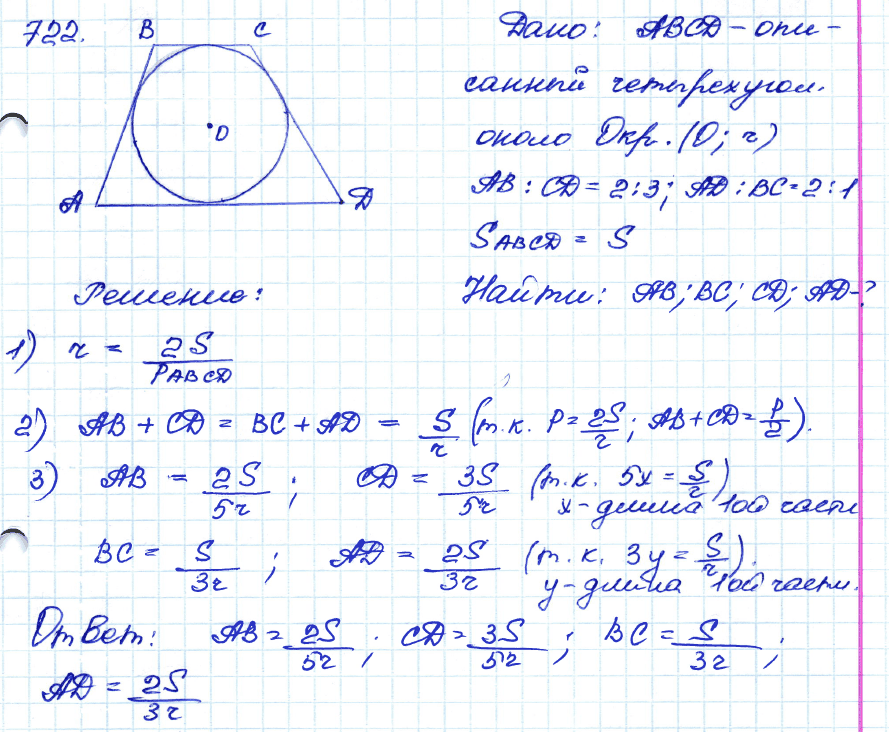 722.
B C
O
A D
Дано: ABCD – опи-
санный четырехугол.
около Окр. (O; r)
AB : CD = 2:3; AD : BC = 2:1
S ABCD = S
Найти: AB; BC; CD; AD – ?
Решение:
1) r = 2S / P ABCD
2) AB + CD = BC + AD = S/r (т.к. P = 2S/r; AB + CD = P/2).
3) AB = 2S/5r ; CD = 3S/5r (т.к. 5x = S/r)
x – длина 1ой части
BC = S/3r ; AD = 2S/3r (т.к. 3y = S/r).
y – длина 1ой части.
Ответ: AB = 2S/5r ; CD = 3S/5r ; BC = S/3r ;
AD = 2S/3r